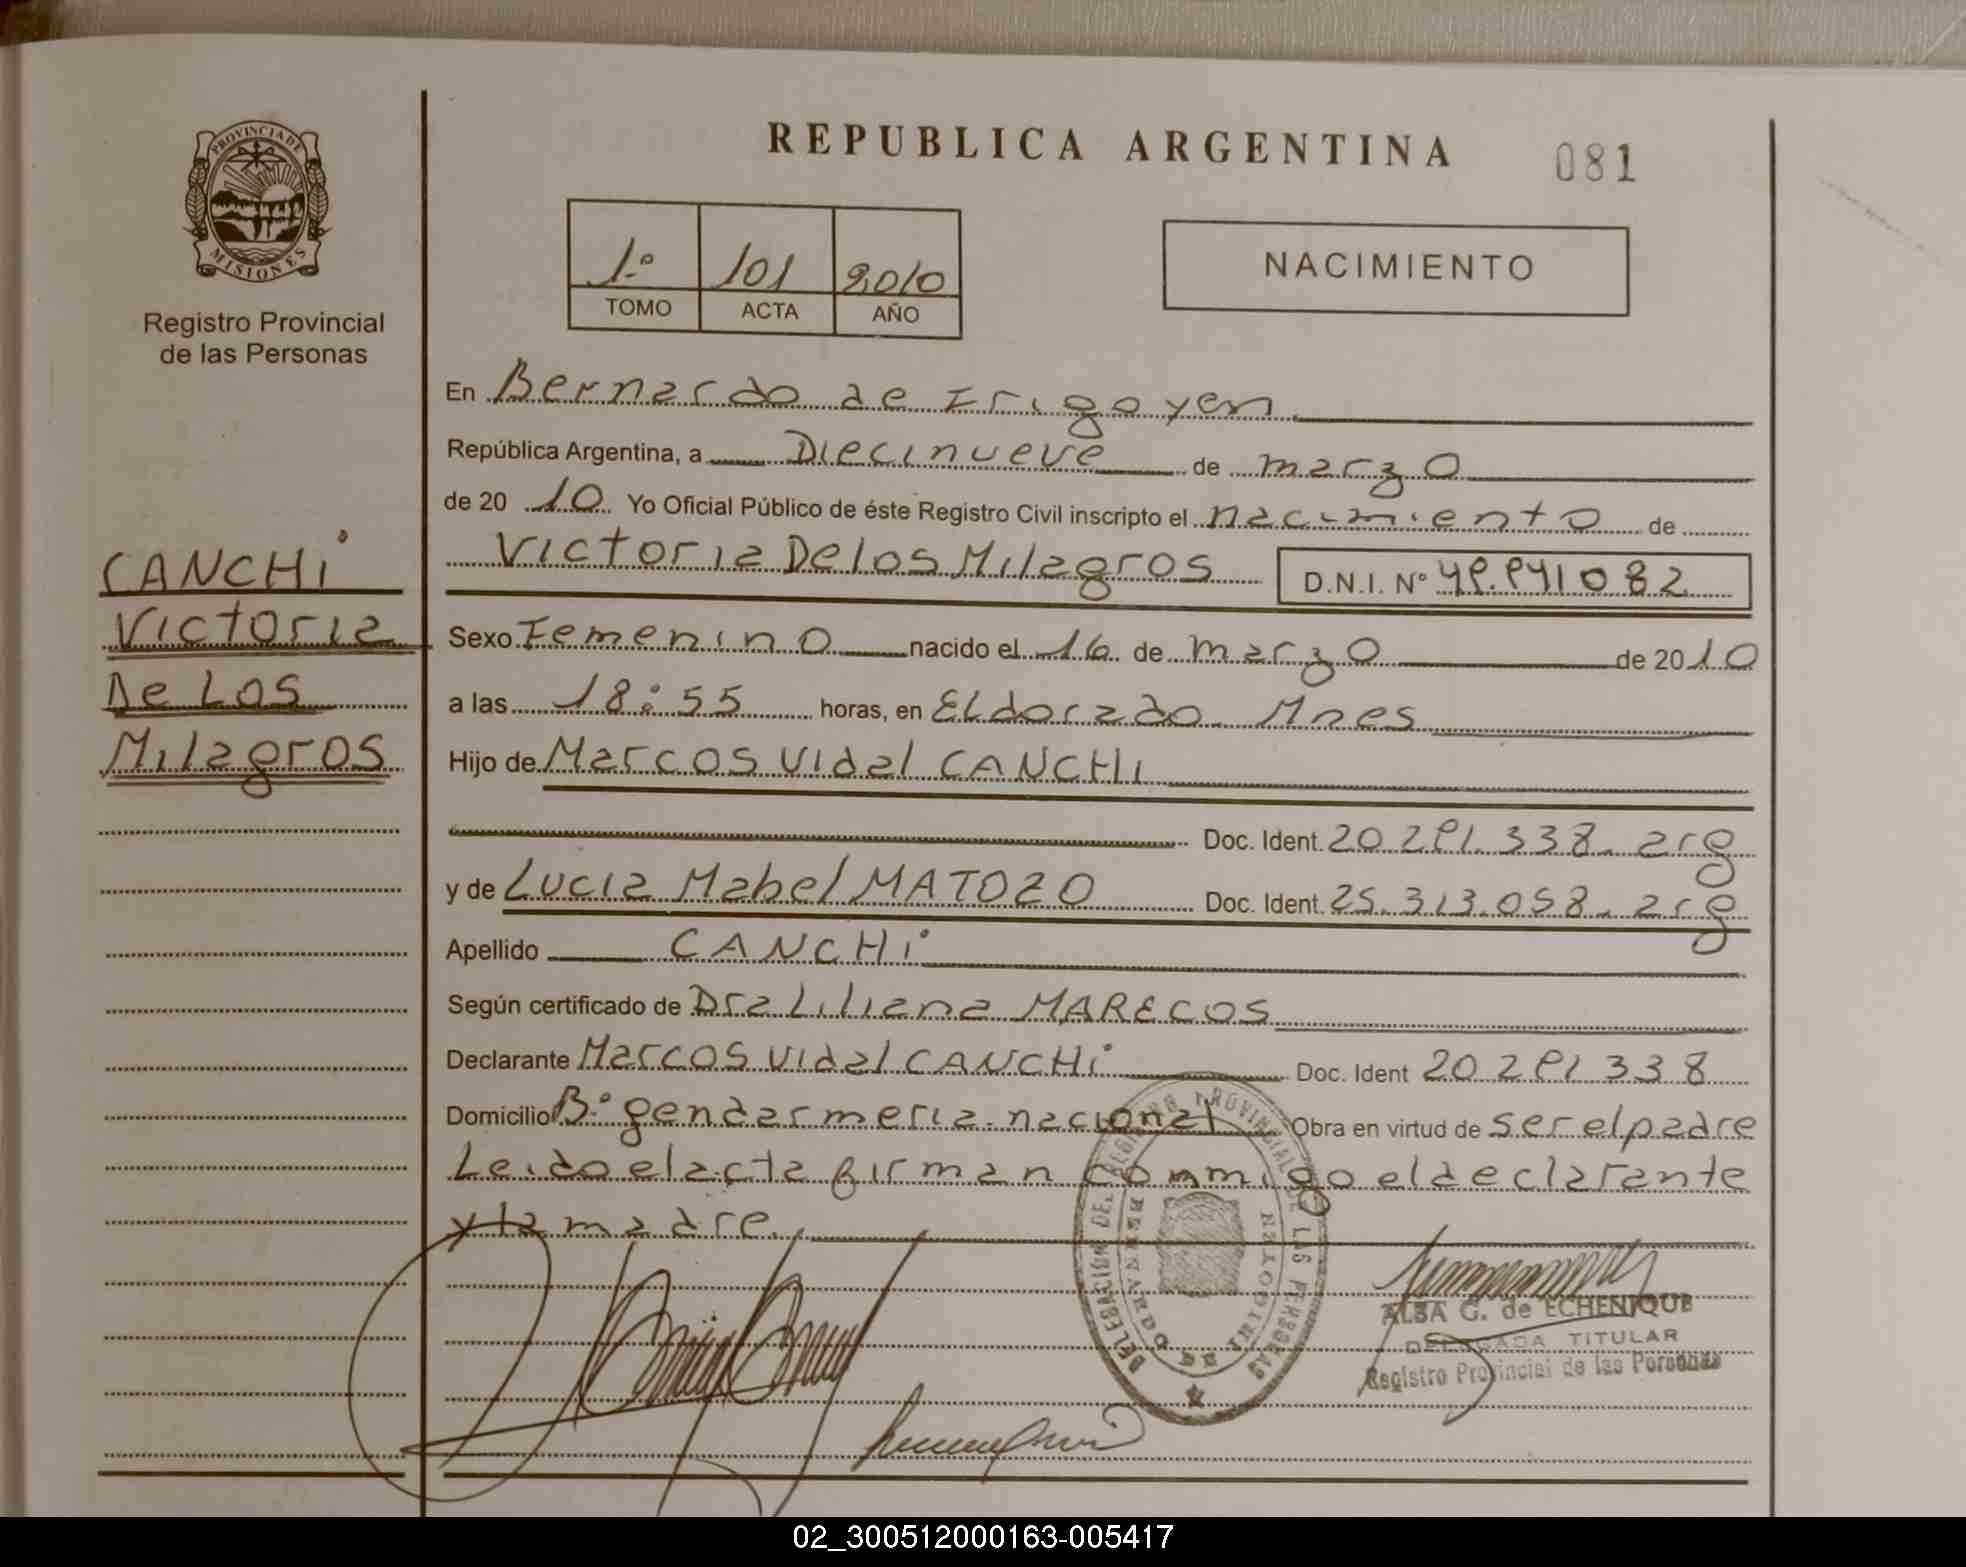 PROVINCIA DE
MISIONES
Registro Provincial
de las Personas
CANCHi
Victoria
De Los
Milagros
REPUBLICA ARGENTINA
081
1.º 101 2010
TOMO ACTA AÑO
NACIMIENTO
En Bernardo de Irigoyen
República Argentina, a Diecinueve de marzo
de 20 10 Yo Oficial Público de éste Registro Civil inscripto el nacimiento de
Victoria De los Milagros D.N.I. Nº 49.941082
Sexo Femenino nacido el 16 de marzo de 2010
a las 18:55 horas, en Eldorado Mnes
Hijo de Marcos Vidal CANCHI
Doc. Ident. 20.291.338. arg
y de Lucia Mabel MATOZO Doc. Ident. 25.313.058. arg
Apellido CANCHi
Según certificado de Dra Liliana MARECOS
Declarante Marcos Vidal CANCHi Doc. Ident 20291338
Domicilio Bº gendarmeria nacional Obra en virtud de ser el padre
Leido el acta firman conmigo el declarante
y la madre.
DELEGACION DEL REGISTRO PROVINCIAL DE LAS PERSONAS
BERNARDO DE IRIGOYEN
ALBA G. de ECHENIQUE
DELEGADA TITULAR
Registro Provincial de las Personas
02_300512000163-005417